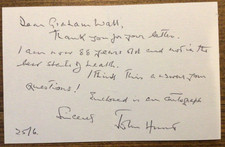 Dear Graham Wall,
Thank you for your letter.
I am now 88 years old and not in the
best state of health.
I think this answers your
questions! Enclosed is an autograph
Sincerely
John Hunt
25/6